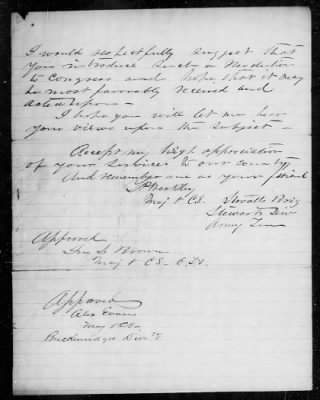 I would respectfully suggest that
you introduce Such a Resolution
to Congress and hope that it may
be most favorably received and
acted upon –
I hope you will let me hear
your views upon the Subject –
Accept my high appreciation
of your Services to our country
And remember me as your friend
Maj & CS Stovalls Brig
Stewarts Div
Army Tenn
Approved
Jno S Brown
Maj & CS –
Approved
Alex Evans
Maj & CS –
Breckinridge Div